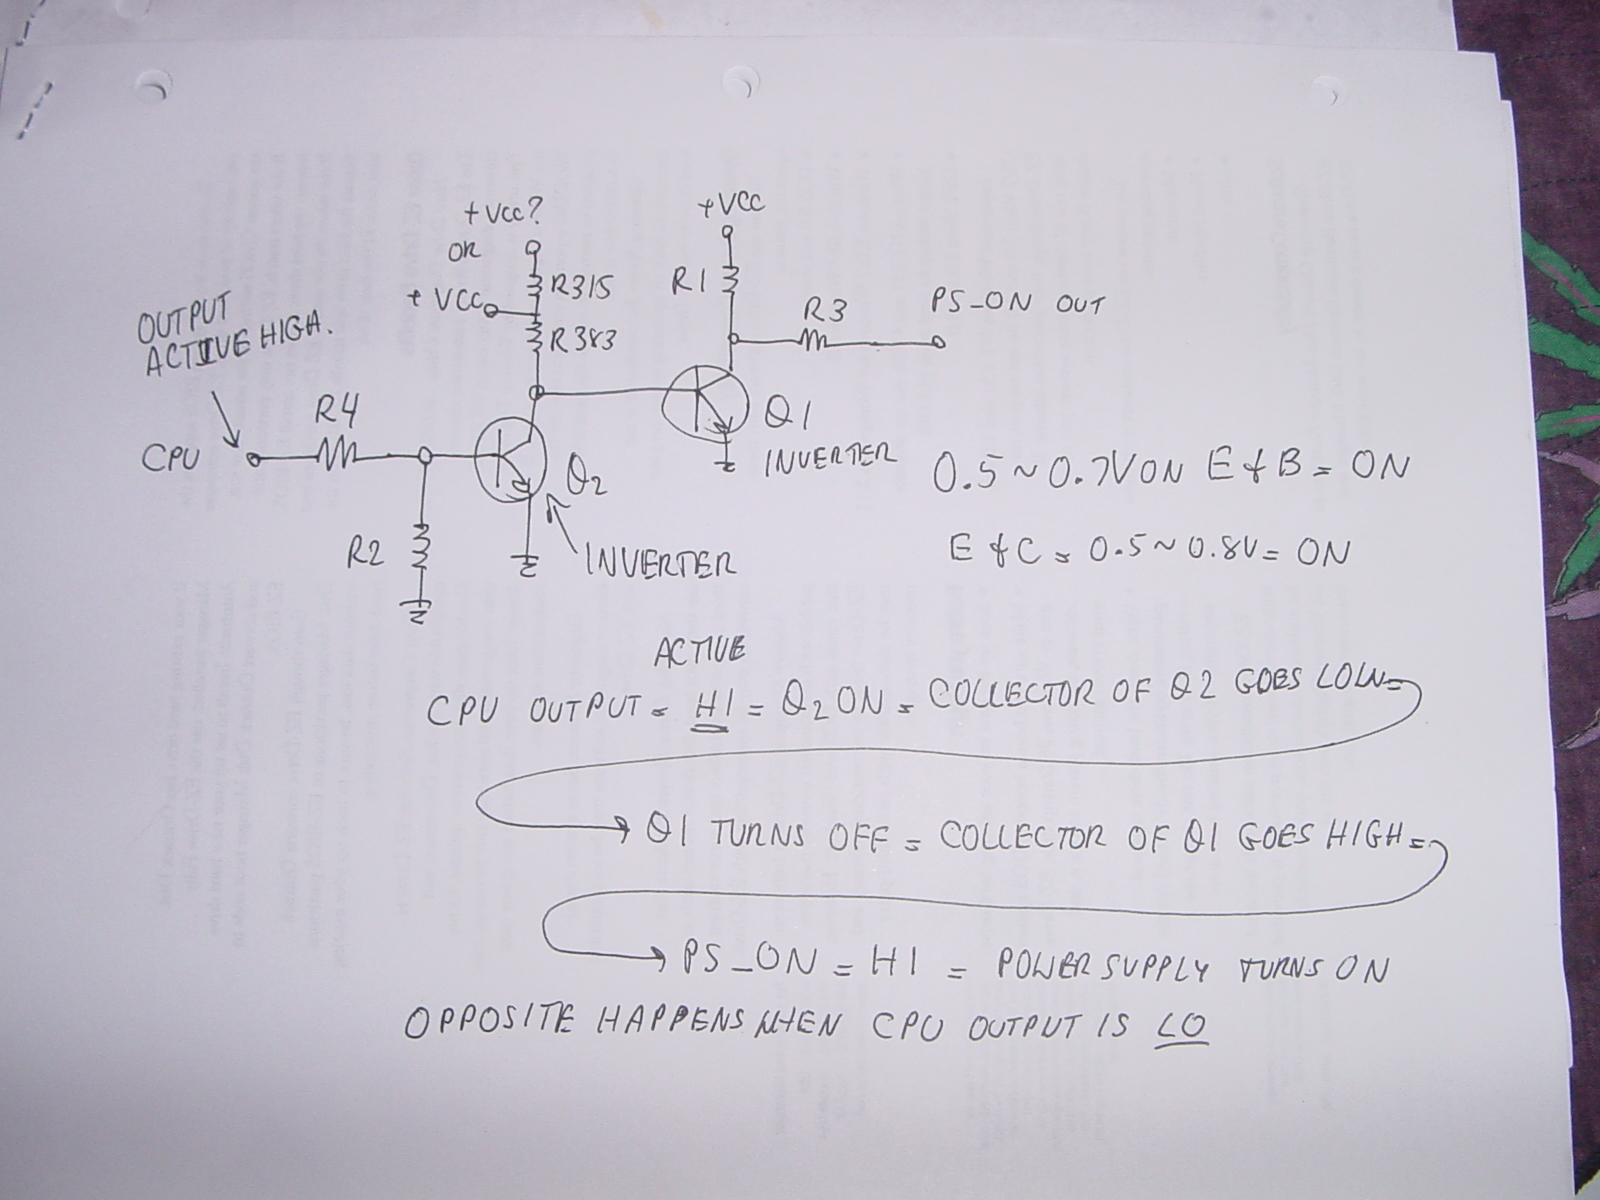 +Vcc?
OR
+VCC
R315
R383
+VCC
R1
R3
PS_ON OUT
OUTPUT
ACTIVE HIGH.
R4
CPU
Q2
Q1
INVERTER
R2
INVERTER
0.5~0.7V ON E & B = ON
E & C = 0.5~0.8V = ON
ACTIVE
CPU OUTPUT = HI = Q2 ON = COLLECTOR OF Q2 GOES LOW =
Q1 TURNS OFF = COLLECTOR OF Q1 GOES HIGH =
PS_ON = HI = POWER SUPPLY TURNS ON
OPPOSITE HAPPENS WHEN CPU OUTPUT IS LO